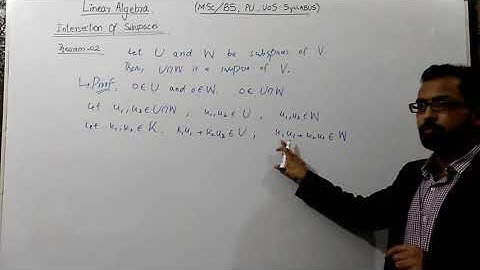 Linear Algebra. (MSc/BS, PU, UoS Syllabus)
Intersection of Subspaces
Let U and W be subspaces of V.
Then U∩W is a subspace of V.
↳ Proof. 0∈U and 0∈W. 0∈U∩W
Let u₁, u₂ ∈ U∩W, u₁, u₂ ∈ U, u₁, u₂ ∈ W
Let K₁, K₂ ∈ K. K₁u₁ + K₂u₂ ∈ U, K₁u₁ + K₂u₂ ∈ W